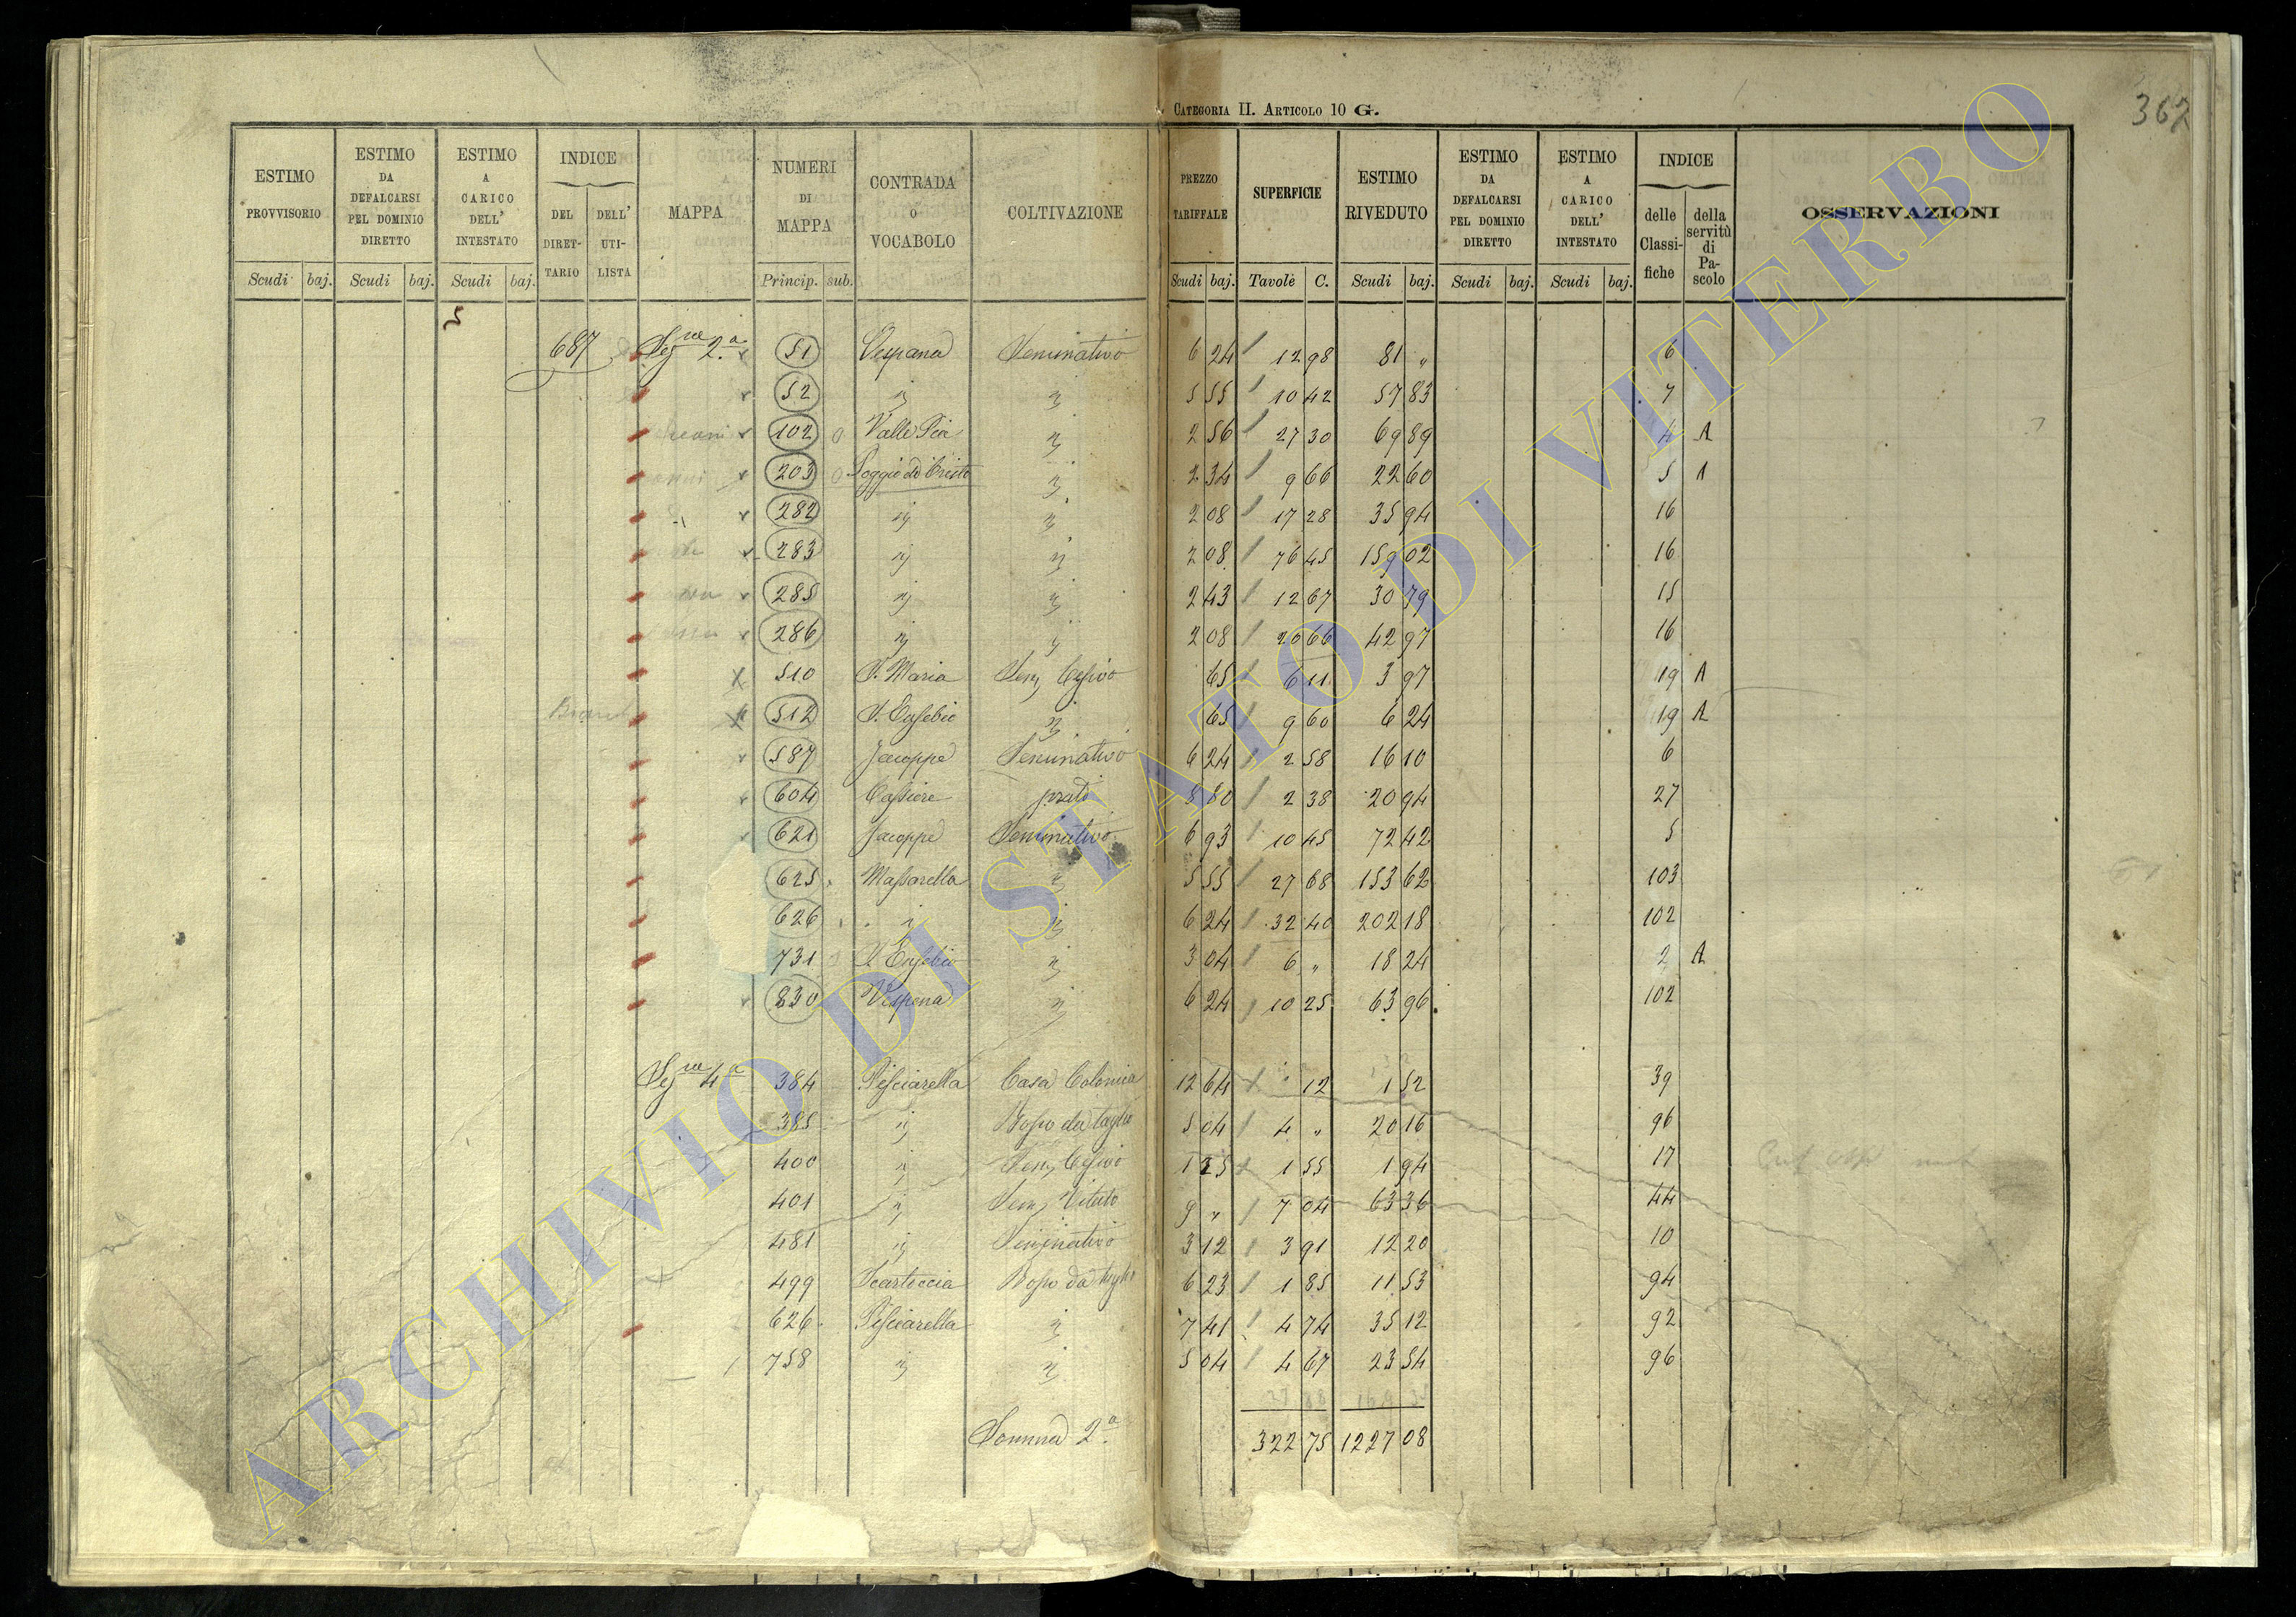 CATEGORIA II. ARTICOLO 10 G.
362
ESTIMO PROVVISORIO Scudi baj.
ESTIMO DA DEFALCARSI PEL DOMINIO DIRETTO Scudi baj.
ESTIMO A CARICO DELL' INTESTATO Scudi baj.
INDICE DEL DIRETTARIO DELL' UTILISTA
MAPPA
NUMERI DI MAPPA Princip. sub.
CONTRADA O VOCABOLO
COLTIVAZIONE
PREZZO TARIFFALE Scudi baj.
SUPERFICIE Tavole C.
ESTIMO RIVEDUTO Scudi baj.
ESTIMO DA DEFALCARSI PEL DOMINIO DIRETTO Scudi baj.
ESTIMO A CARICO DELL' INTESTATO Scudi baj.
INDICE delle Classifiche della servitù di Pascolo
OSSERVAZIONI
687 Segne 2.a 51 Vespana Seminativo 6 24 12 98 81 „ 6
52 " " 5 55 10 42 57 83 7
102 Valle Pia " 2 56 27 30 69 89 4 A
203 Poggio di Cristo " 2 34 9 66 22 60 5 A
282 " " 2 08 17 28 35 94 16
283 " " 2 08 76 45 159 02 16
285 " " 2 43 12 67 30 79 15
286 " " 2 08 20 66 42 97 16
510 S. Maria Sem. Cesivo 65 6 11 3 97 19 A
512 S. Eusebio " 65 9 60 6 24 19 A
587 Jacoppe Seminativo 6 24 2 58 16 10 6
604 Cassiere prati 8 80 2 38 20 94 27
621 Jacoppe Seminativo 6 93 10 45 72 42 5
625 Massarella " 5 55 27 68 153 62 103
626 " " 6 24 32 40 202 18 102
731 S. Eusebio " 3 04 6 „ 18 24 2 A
830 Vespena " 6 24 10 25 63 96 102
Segne 4a 384 Pisciarella Casa Colonica 12 64 12 1 52 39
385 " Bosco da taglio 5 04 4 „ 20 16 96
400 " Sem. Cesivo 1 25 1 55 1 94 17
401 " Sem. Vitato 9 „ 7 04 63 36 44
481 " Seminativo 3 12 3 91 12 20 10
499 Scarteccia Bosco da taglio 6 23 1 85 11 53 94
626 Pisciarella " 7 41 4 74 35 12 92
758 " " 5 04 4 67 23 54 96
Somma 2.a 322 75 1227 08
ARCHIVIO DI STATO DI VITERBO